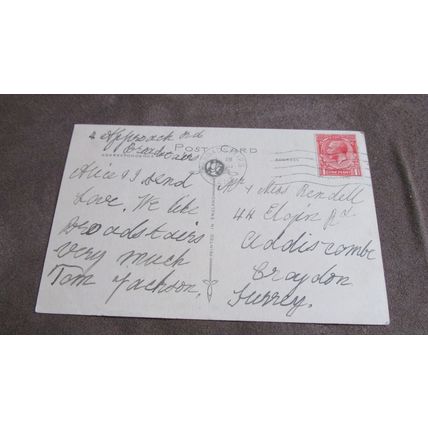 4 Approach Rd
Broadstairs
POST CARD
ADDRESS
Alice & I send
Love. We like
Broadstairs
very much
Tom Jackson.
PRINTED IN ENGLAND
Mr & Miss Rendell
44 Elgin Rd
Addiscombe
Croydon
Surrey.